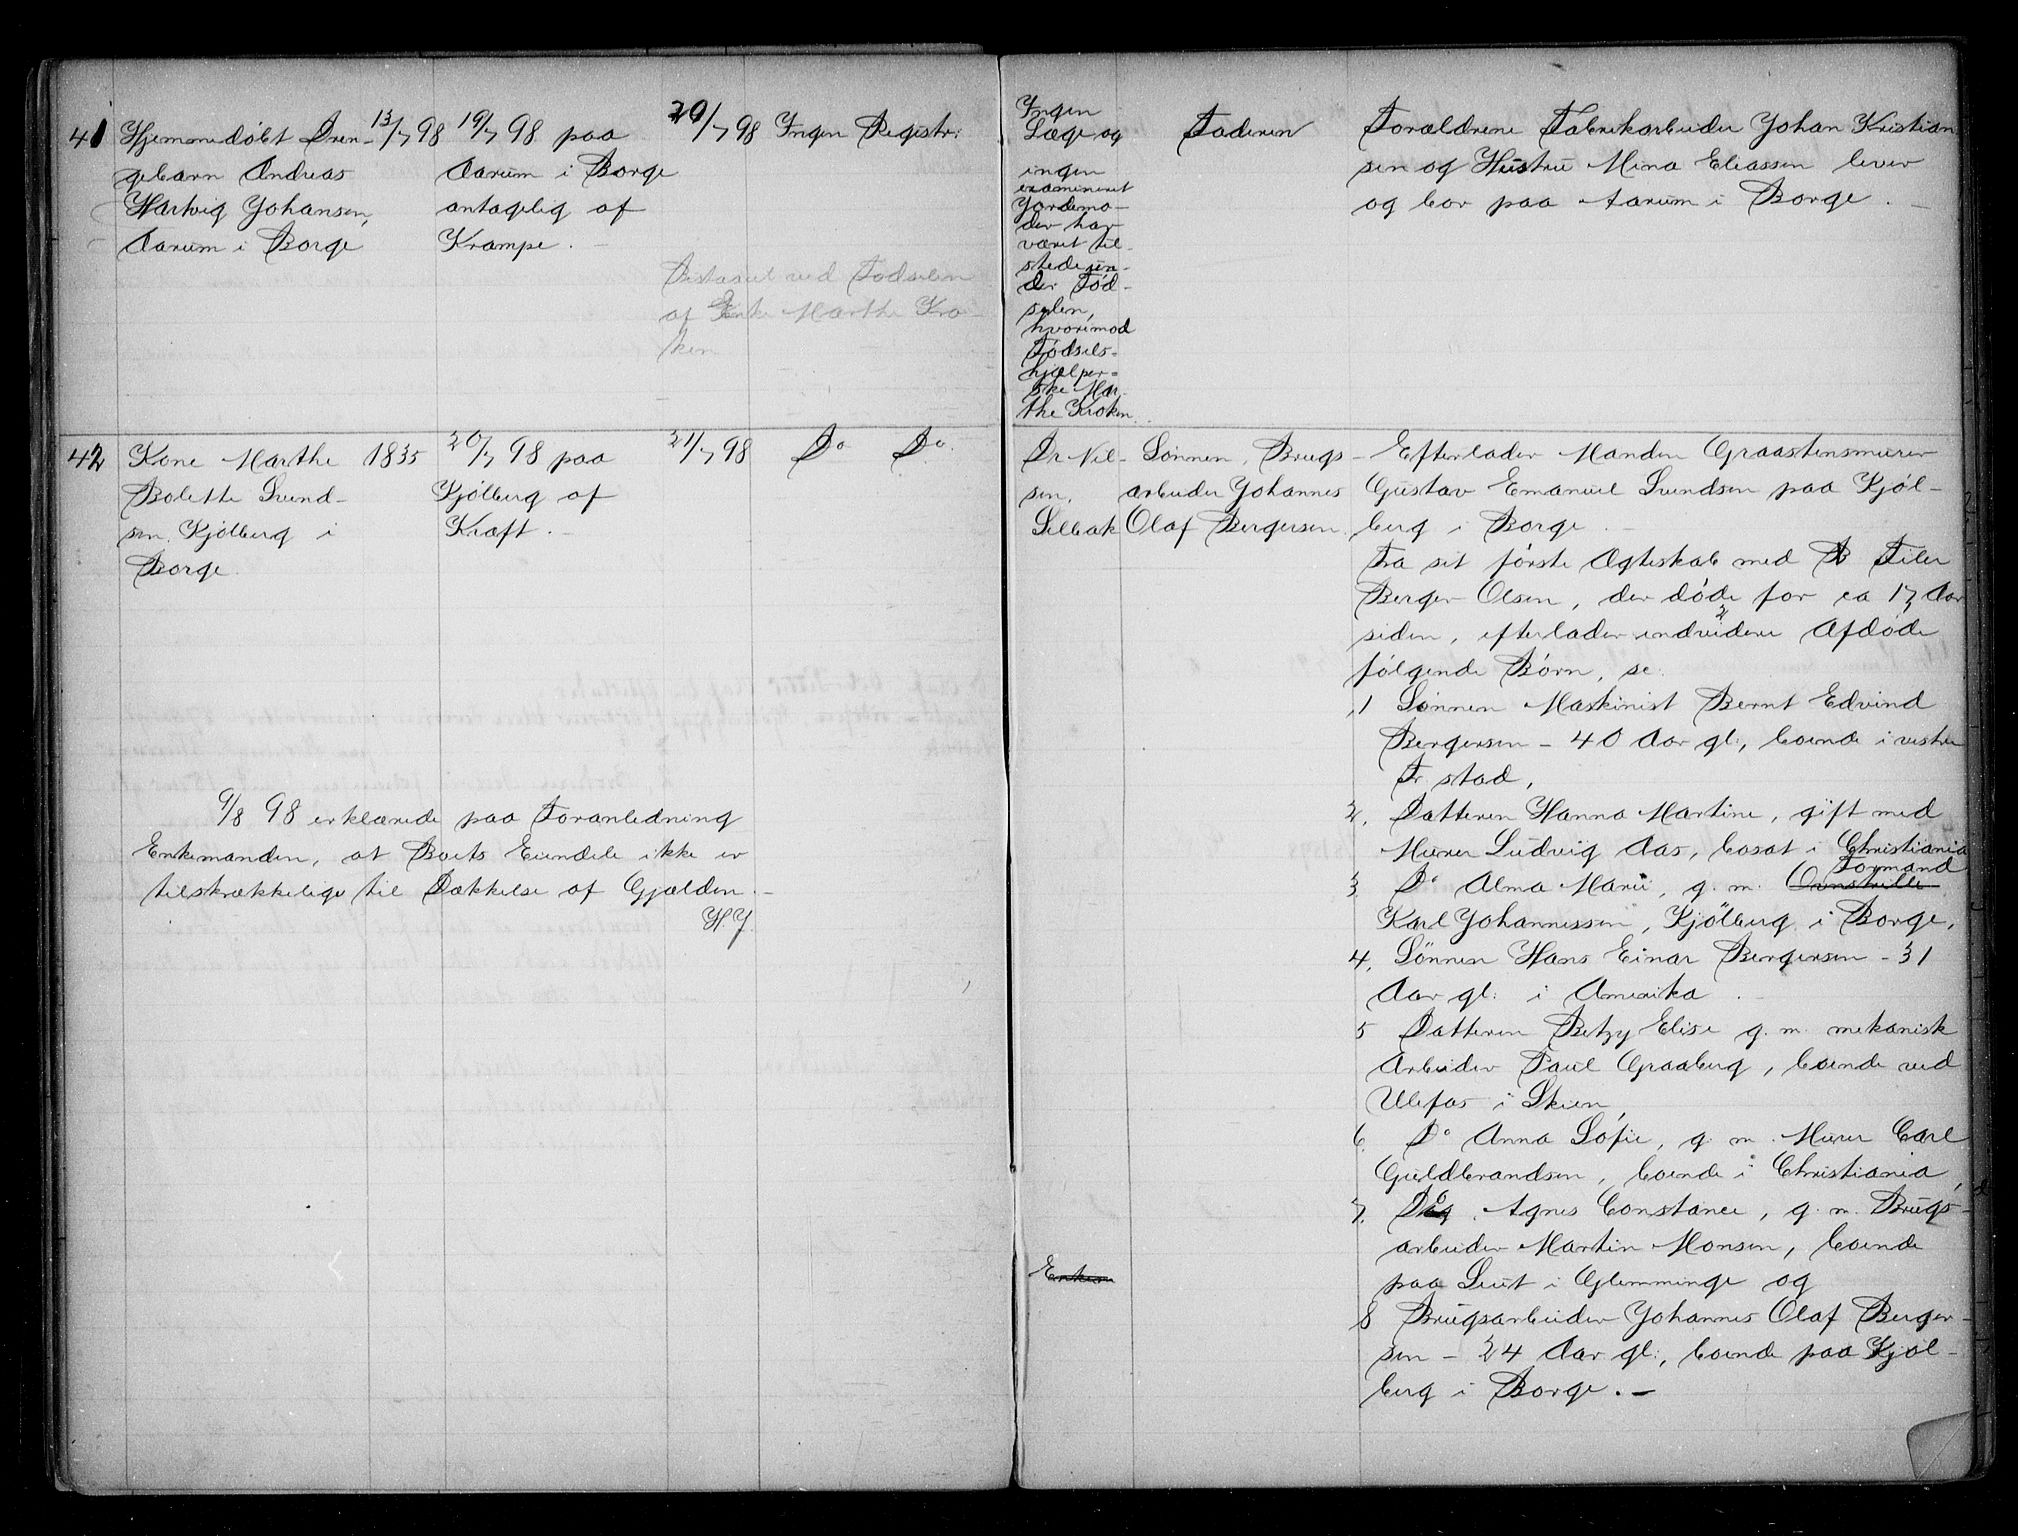 41
Hjemmedøbt Dren-
gebarn Andreas
Hartvig Johansen,
Aarum i Borge
13/7 98
19/7 98 paa
Aarum i Borge
antagelig af
Krampe. -
20/7 98
Ingen Registr:
Bistaaet ved Fødselen
af Enke Marthe Kro-
ken
Ingen
Læge og
ingen
examineret
Jordemo-
der har
været til-
stede un-
der Fød-
selen,
hvorimod
Fødsels-
hjælper-
ske Mar-
the Kroken.
Faderen
Forældrene Fabrikarbeider Johan Kristian
sen og Hustru Mina Eliassen lever
og bor paa Aarum i Borge. -
42
Kone Marthe
Bolette Svend-
sen, Kjølberg i
Borge.
1835
20/7 98 paa
Kjølberg af
Kræft. -
21/7 98
Do Do.
Dr Nil-
sen,
Selbak
Sønnen, Brugs-
arbeider Johannes
Olaf Bergersen.
Efterlader Manden Graastensmurer
Gustav Emanuel Svendsen paa Kjøl-
berg i Borge. -
Fra sit første Ægteskab med B Filer
Berger Olsen, der døde for ca 17 Aar
siden, efterlader endvidere Afdøde
følgende Børn, se:
1 Sønnen Maskinist Bernt Edvind
Bergersen - 40 Aar gl:, boende i vestre
Fr.stad,
2. Datteren Hanna Martine, gift med
Murer Ludvig Aas, bosat i Christiania
Formand
3 Do Alma Marie, g. m.
Karl Johannessen, Kjølberg i Borge,
4. Sønnen Hans Einar Bergersen - 31
Aar gl: i Amerika. -
5 Datteren Betzy Elise g. m. mekanisk
Arbeider Paul Graaberg, boende ved
Ulefos i Skien,
6. Do Anna Sofie, g. m. Murer Carl
Guldbrandsen, boende i Christiania,
7. Do Agnes Constance, g. m. Brugs-
arbeider Martin Monsen, boende
paa Leiet i Glemminge og
8 Brugsarbeider Johannes Olaf Berger-
sen - 24 Aar gl:, boende paa Kjøl-
berg i Borge. -
9/8 98 erklærede paa Foranledning
Enkemanden, at Boets Eiendele ikke er
tilstrækkelige til Dækkelse af Gjælden. -
H.J.
Enken